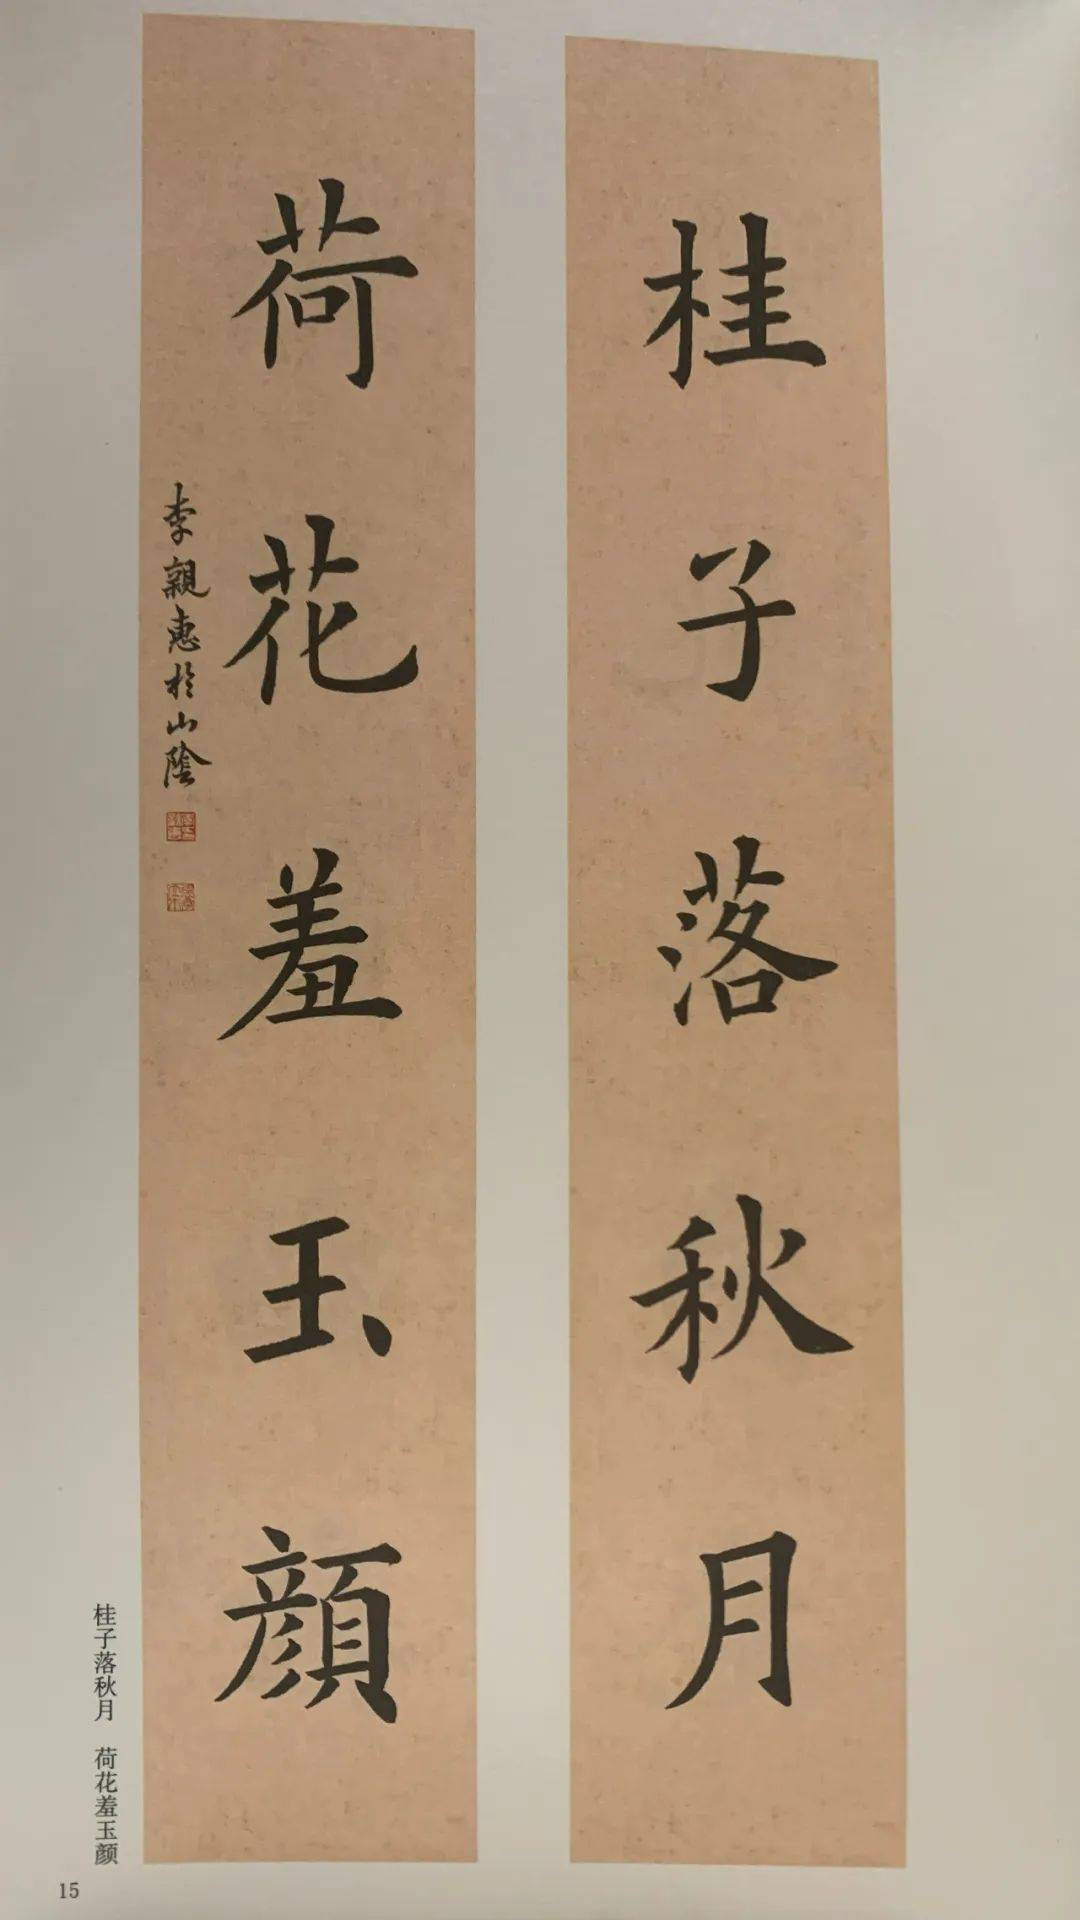 桂子落秋月
荷花羞玉顔
李親惠於山陰
桂子落秋月 荷花羞玉颜
15